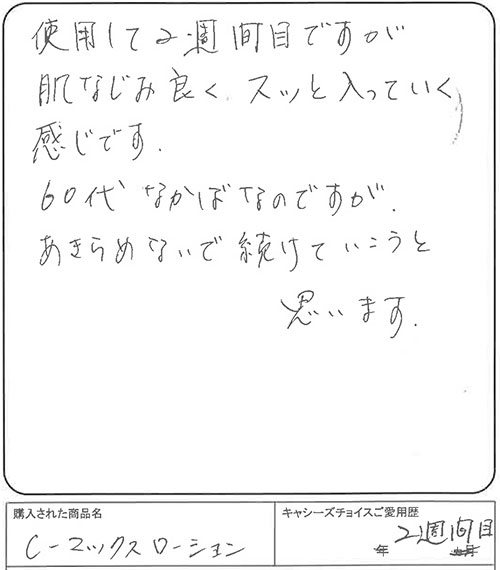 使用して2週間目ですが
肌なじみ良く、スッと入っていく
感じです.
60代なかばなのですが、
あきらめないで続けていこうと
思います.
購入された商品名
C-マックスローション
キャシーズチョイスご愛用歴
年 2週間目